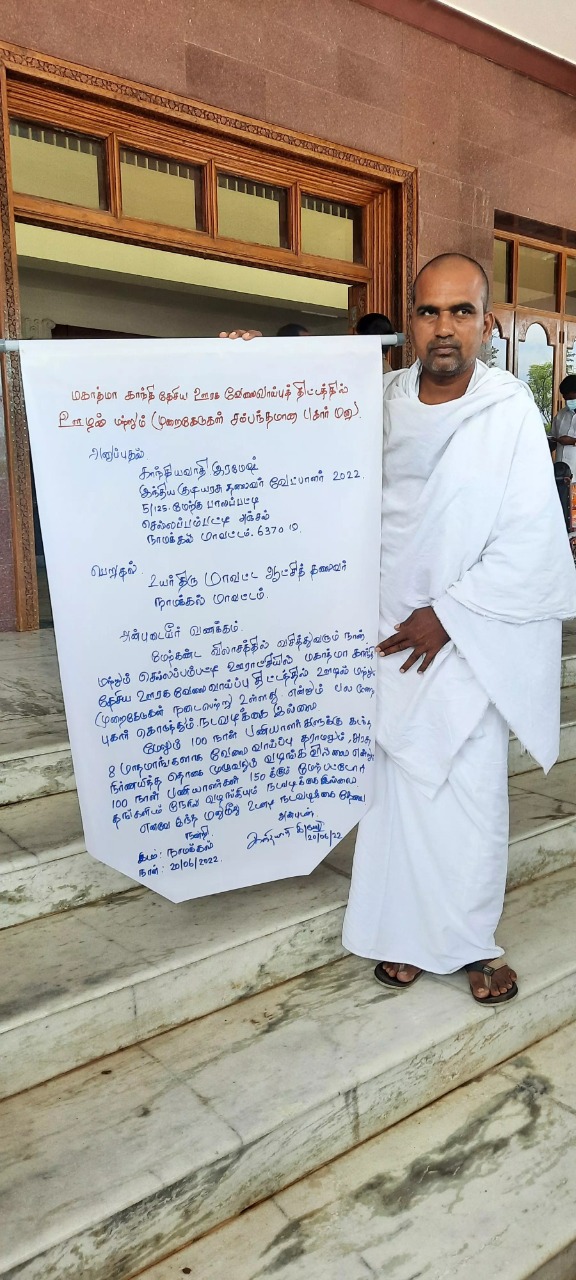 மகாத்மா காந்தி தேசிய ஊரக வேலைவாய்புத் திட்டத்தில்
ஊழல் மற்றும் முறைகேடுகள் சம்பந்தமான புகார் மனு.
அனுப்புதல்
காந்தியவாதி இரமேஷ்
இந்திய குடியரசு தலைவர் வேட்பாளர் 2022.
5/125. மேற்கு பாலப்பட்டி
செல்லப்பம்பட்டி அஞ்சல்
நாமக்கல் மாவட்டம். 637019.
பெறுதல்.
உயர்திரு மாவட்ட ஆட்சித் தலைவர்
நாமக்கல் மாவட்டம்.
அன்புடையீர் வணக்கம்.
மேற்கண்ட விலாசத்தில் வசித்துவரும் நான்.
மற்றும் செல்லப்பம்பட்டி ஊராட்சியில் மகாத்மா காந்தி
தேசிய ஊரக வேலைவாய்பு திட்டத்தில் ஊழல் மற்றும்
முறைகேடுகள் நடைபெற்று உள்ளது என்றும் பல முறை
புகார் கொடுத்தும் நடவடிக்கை இல்லை
மேலும் 100 நாள் பணியாளர்களுக்கு கடந்த
8 மாதமாங்களாக வேலை வாய்ப்பு தராமலும், அரசு
நிர்ணயித்த தொகை முழுவதும் வழங்க வில்லை என்றும்
100 நாள் பணியாளர்கள் 150 க்கும் மேற்பட்டோர்
தங்களிடம் நேரில் வழங்கியும் நடவடிக்கை இல்லை
எனவே இந்த மனுமீது உடனடி நடவடிக்கை தேவை
நன்றி
அன்புடன்
இடம்: நாமக்கல்
20/06/22
நாள்: 20/06/2022.